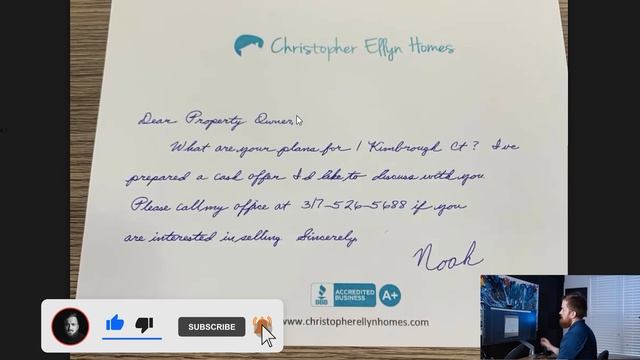 Christopher Ellyn Homes
Dear Property Owner,
What are your plans for 1 Kimbrough Ct? I've
prepared a cash offer I'd like to discuss with you.
Please call my office at 317-526-5688 if you
are interested in selling Sincerely,
Noah
BBB
ACCREDITED
BUSINESS
A+
SUBSCRIBE
www.christopherellynhomes.com